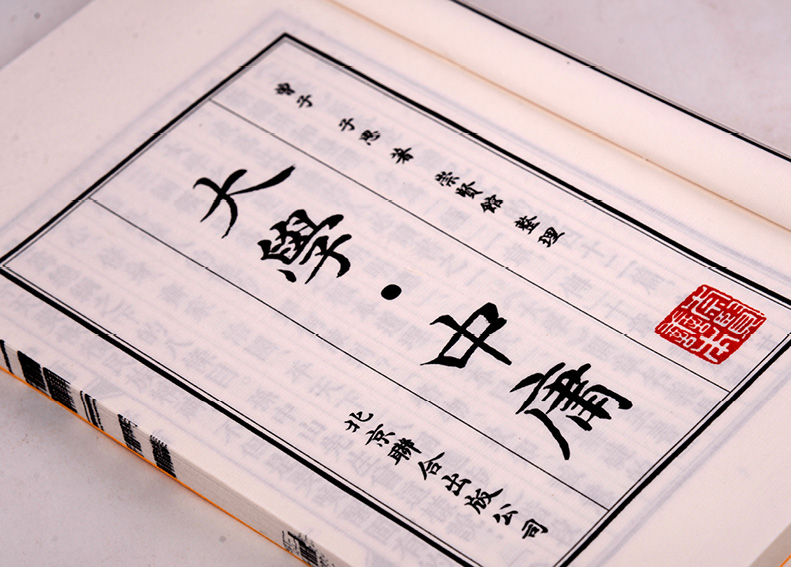 曾子 子思 著 崇賢館 整理
大學·中庸
北京聯合出版公司